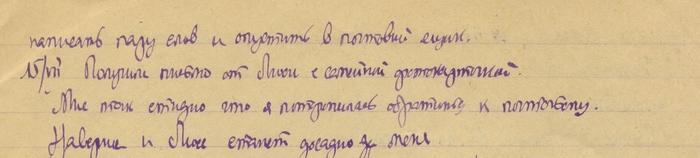 написать пару слов и опустить в почтовый ящик.
15/VII Получили письмо от Люси с семейной фотокарточкой.
Мне так стыдно что я поторопилась обратиться к почтовому.
Наверне и Люсе станет досадно за меня